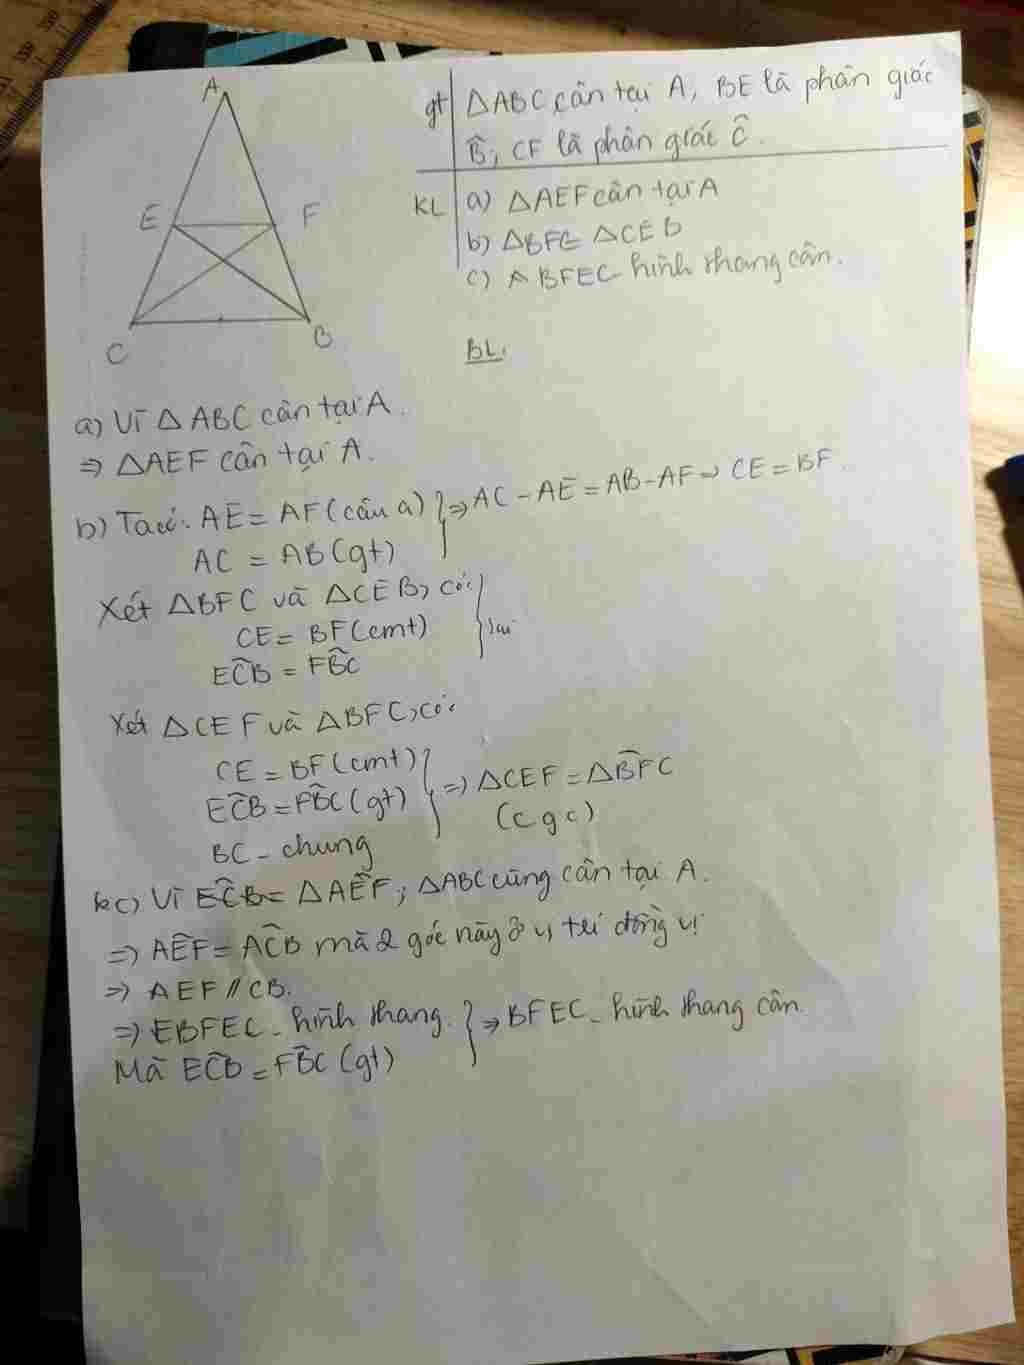 A
E
F
C
B
gt ΔABC cân tại A, BE là phân giác
B̂, CF là phân giác Ĉ.
KL a) ΔAEF cân tại A
b) ΔBFC = ΔCEB
c) BFEC - hình thang cân.
BL.
a) Vì ΔABC cân tại A.
⇒ ΔAEF cân tại A.
b) Ta có: AE = AF (câu a) } ⇒ AC - AE = AB - AF ⇒ CE = BF.
AC = AB (gt)
Xét ΔBFC và ΔCEB, có:
CE = BF (cmt) } sai
EĈB = FB̂C
Xét ΔCEF và ΔBFC, có:
CE = BF (cmt)
EĈB = FB̂C (gt) } ⇒ ΔCEF = ΔBF̂C
BC - chung (c g c)
c) Vì EĈB = ΔAÊF; ΔABC cũng cân tại A.
⇒ AÊF = AĈB mà 2 góc này ở vị trí đồng vị
⇒ AEF // CB.
⇒ EBFEC - hình thang. } ⇒ BFEC - hình thang cân.
Mà EĈB = FB̂C (gt)